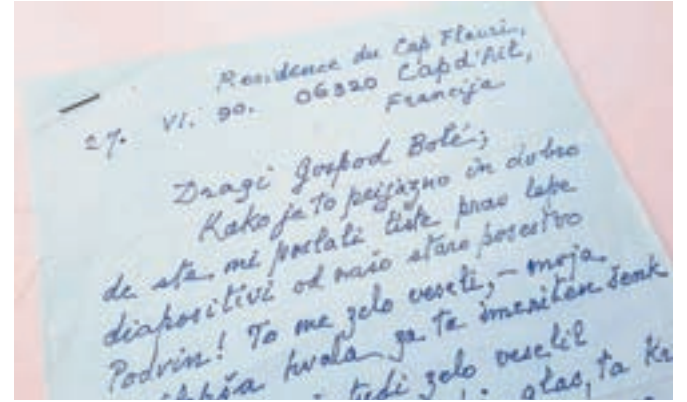 Residence du Cap Fleuri,
27. VI. 90. 06320 Cap d'Ail,
Francija
Dragi Gospod Bolé;
Kako je to prijazno in dobro
de ste mi poslati tiste prav lepe
diapositivi od našo staro posestvo
Podvin! To me zelo veseli, – moja
hvala za ta imeniten šenk
tudi zelo veselil
glas, ta